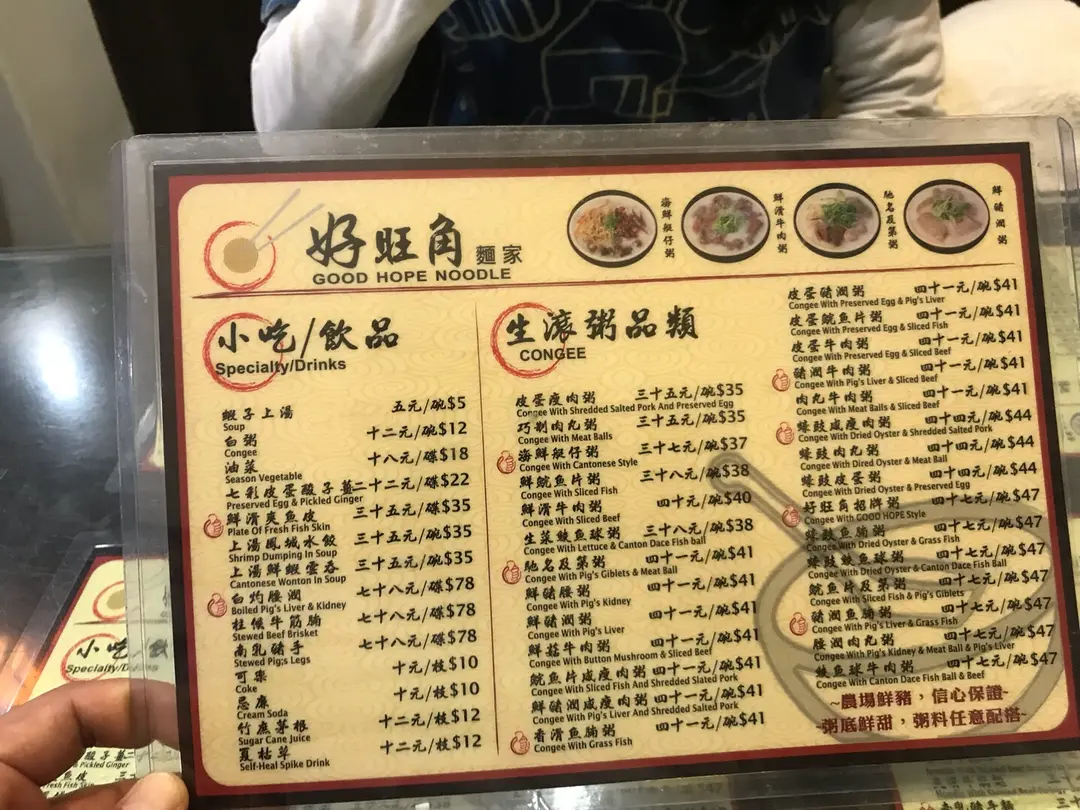 好旺角麵家
GOOD HOPE NOODLE
海鮮艇仔粥
鮮滑牛肉粥
馳名及第粥
鮮豬潤粥
小吃/飲品
Specialty/Drinks
蝦子上湯 五元/碗$5
Soup
白粥 十二元/碗$12
Congee
油菜 十八元/碟$18
Season Vegetable
七彩皮蛋酸子薑二十二元/碟$22
Preserved Egg & Pickled Ginger
鮮滑爽魚皮 三十五元/碟$35
Plate Of Fresh Fish Skin
上湯鳳城水餃 三十五元/碗$35
Shrimp Dumping In Soup
上湯鮮蝦雲吞 三十五元/碗$35
Cantonese Wonton In Soup
白灼腰潤 七十八元/碟$78
Boiled Pig's Liver & Kidney
柱候牛筋腩 七十八元/碟$78
Stewed Beef Brisket
南乳豬手 七十八元/碟$78
Stewed Pig;s Legs
可樂 十元/枝$10
Coke
忌廉 十元/枝$10
Cream Soda
竹蔗茅根 十二元/枝$12
Sugar Cane Juice
夏枯草 十二元/枝$12
Self-Heal Spike Drink
生滾粥品類
CONGEE
皮蛋瘦肉粥 三十五元/碗$35
Congee With Shredded Salted Pork And Preserved Egg
巧制肉丸粥 三十五元/碗$35
Congee With Meat Balls
海鮮艇仔粥 三十七元/碗$37
Congee With Cantonese Style
鮮鯇魚片粥 三十八元/碗$38
Congee With Sliced Fish
鮮滑牛肉粥 四十元/碗$40
Congee With Sliced Beef
生菜鯪魚球粥 三十八元/碗$38
Congee With Lettuce & Canton Dace Fish ball
馳名及第粥 四十一元/碗$41
Congee With Pig's Giblets & Meat Ball
鮮豬腰粥 四十一元/碗$41
Congee With Pig's Kidney
鮮豬潤粥 四十一元/碗$41
Congee With Pig's Liver
鮮菇牛肉粥 四十一元/碗$41
Congee With Button Mushroom & Sliced Beef
鯇魚片咸瘦肉粥 四十一元/碗$41
Congee With Sliced Fish And Shredded Slated Pork
鮮豬潤咸瘦肉粥 四十一元/碗$41
Congee With Pig's Liver And Shredded Salted Pork
香滑魚腩粥 四十一元/碗$41
Congee With Grass Fish
皮蛋豬潤粥 四十一元/碗$41
Congee With Preserved Egg & Pig's Liver
皮蛋鯇魚片粥 四十一元/碗$41
Congee With Preserved Egg & Sliced Fish
皮蛋牛肉粥 四十一元/碗$41
Congee With Preserved Egg & Sliced Beef
豬潤牛肉粥 四十一元/碗$41
Congee With Pig's Liver & Sliced Beef
肉丸牛肉粥 四十一元/碗$41
Congee With Meat Balls & Sliced Beef
蠔豉咸瘦肉粥 四十四元/碗$44
Congee With Dried Oyster & Shredded Salted Pork
蠔豉肉丸粥 四十四元/碗$44
Congee With Dired Oyster & Meat Ball
蠔豉皮蛋粥 四十四元/碗$44
Congee With Dried Oyster & Preserved Egg
好旺角招牌粥 四十七元/碗$47
Congee With GOOD HOPE Style
蠔豉魚腩粥 四十七元/碗$47
Congee With Dried Oyster & Grass Fish
蠔豉鯪魚球粥 四十七元/碗$47
Congee With Dried Oyster & Canton Dace Fish Ball
鯇魚片及第粥 四十七元/碗$47
Congee With Sliced Fish & Pig's Giblets
豬潤魚腩粥 四十七元/碗$47
Congee With Pig's Liver & Grass Fish
腰潤肉丸粥 四十七元/碗$47
Congee With Pig's Kidney & Meat Ball & Pig's Liver
鯪魚球牛肉粥 四十七元/碗$47
Congee With Canton Dace Fish Ball & Beef
~農場鮮豬，信心保證~
~粥底鮮甜，粥料任意配搭~
小吃/飲
Specialty/Drinks